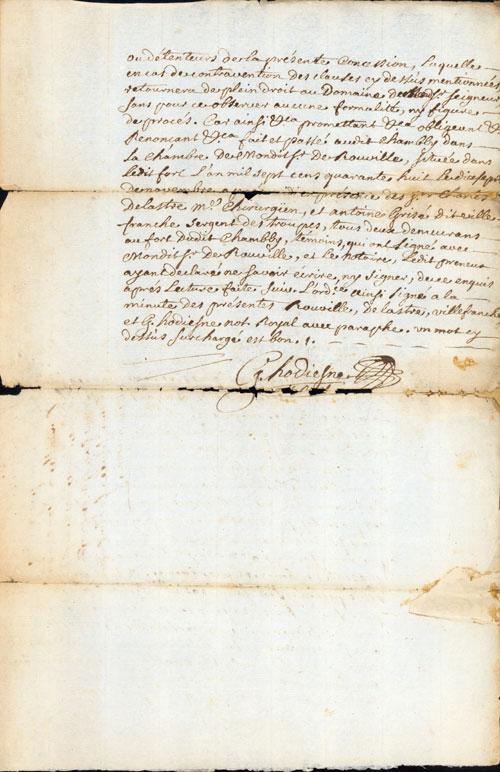 ou détenteurs de la présente Concession, Laquelle
en cas de contravention des clauses cy dessus mentionnées
retournera de plein droit au Domaine de Seigneur
Sans pour ce observer aucune formalité, ny figure
de procès. Car ainsi &ca promettant &ca obligeant &
Renonçant &ca fait et passé audit Chambly dans
La chambre de Mondit Sr. de Rouville, située dans
ledit fort L'an mil sept cens quarante huit Le dix sept
de novembre en présence des Srs. Charles
Delastre Me. Chirurgien, et antoine Grisé dit ville
franche Sergent des troupes, tous deux demeurans
au fort Dudit Chambly, témoins, qui ont Signé avec
Mondit Sr. de Rouville, et le notaire, Ledit preneur
ayant declaré ne savoir écrire, ny Signer, de ce enquis
après Lecture faite Suiv. L'ordce. ainsi Signé a la
minute des présentes Rouville, de lastre, villefranche
et G. hodiesne not. Royal avec paraphe. un mot cy
dessus Surchargé est bon ./.
G. hodiesne